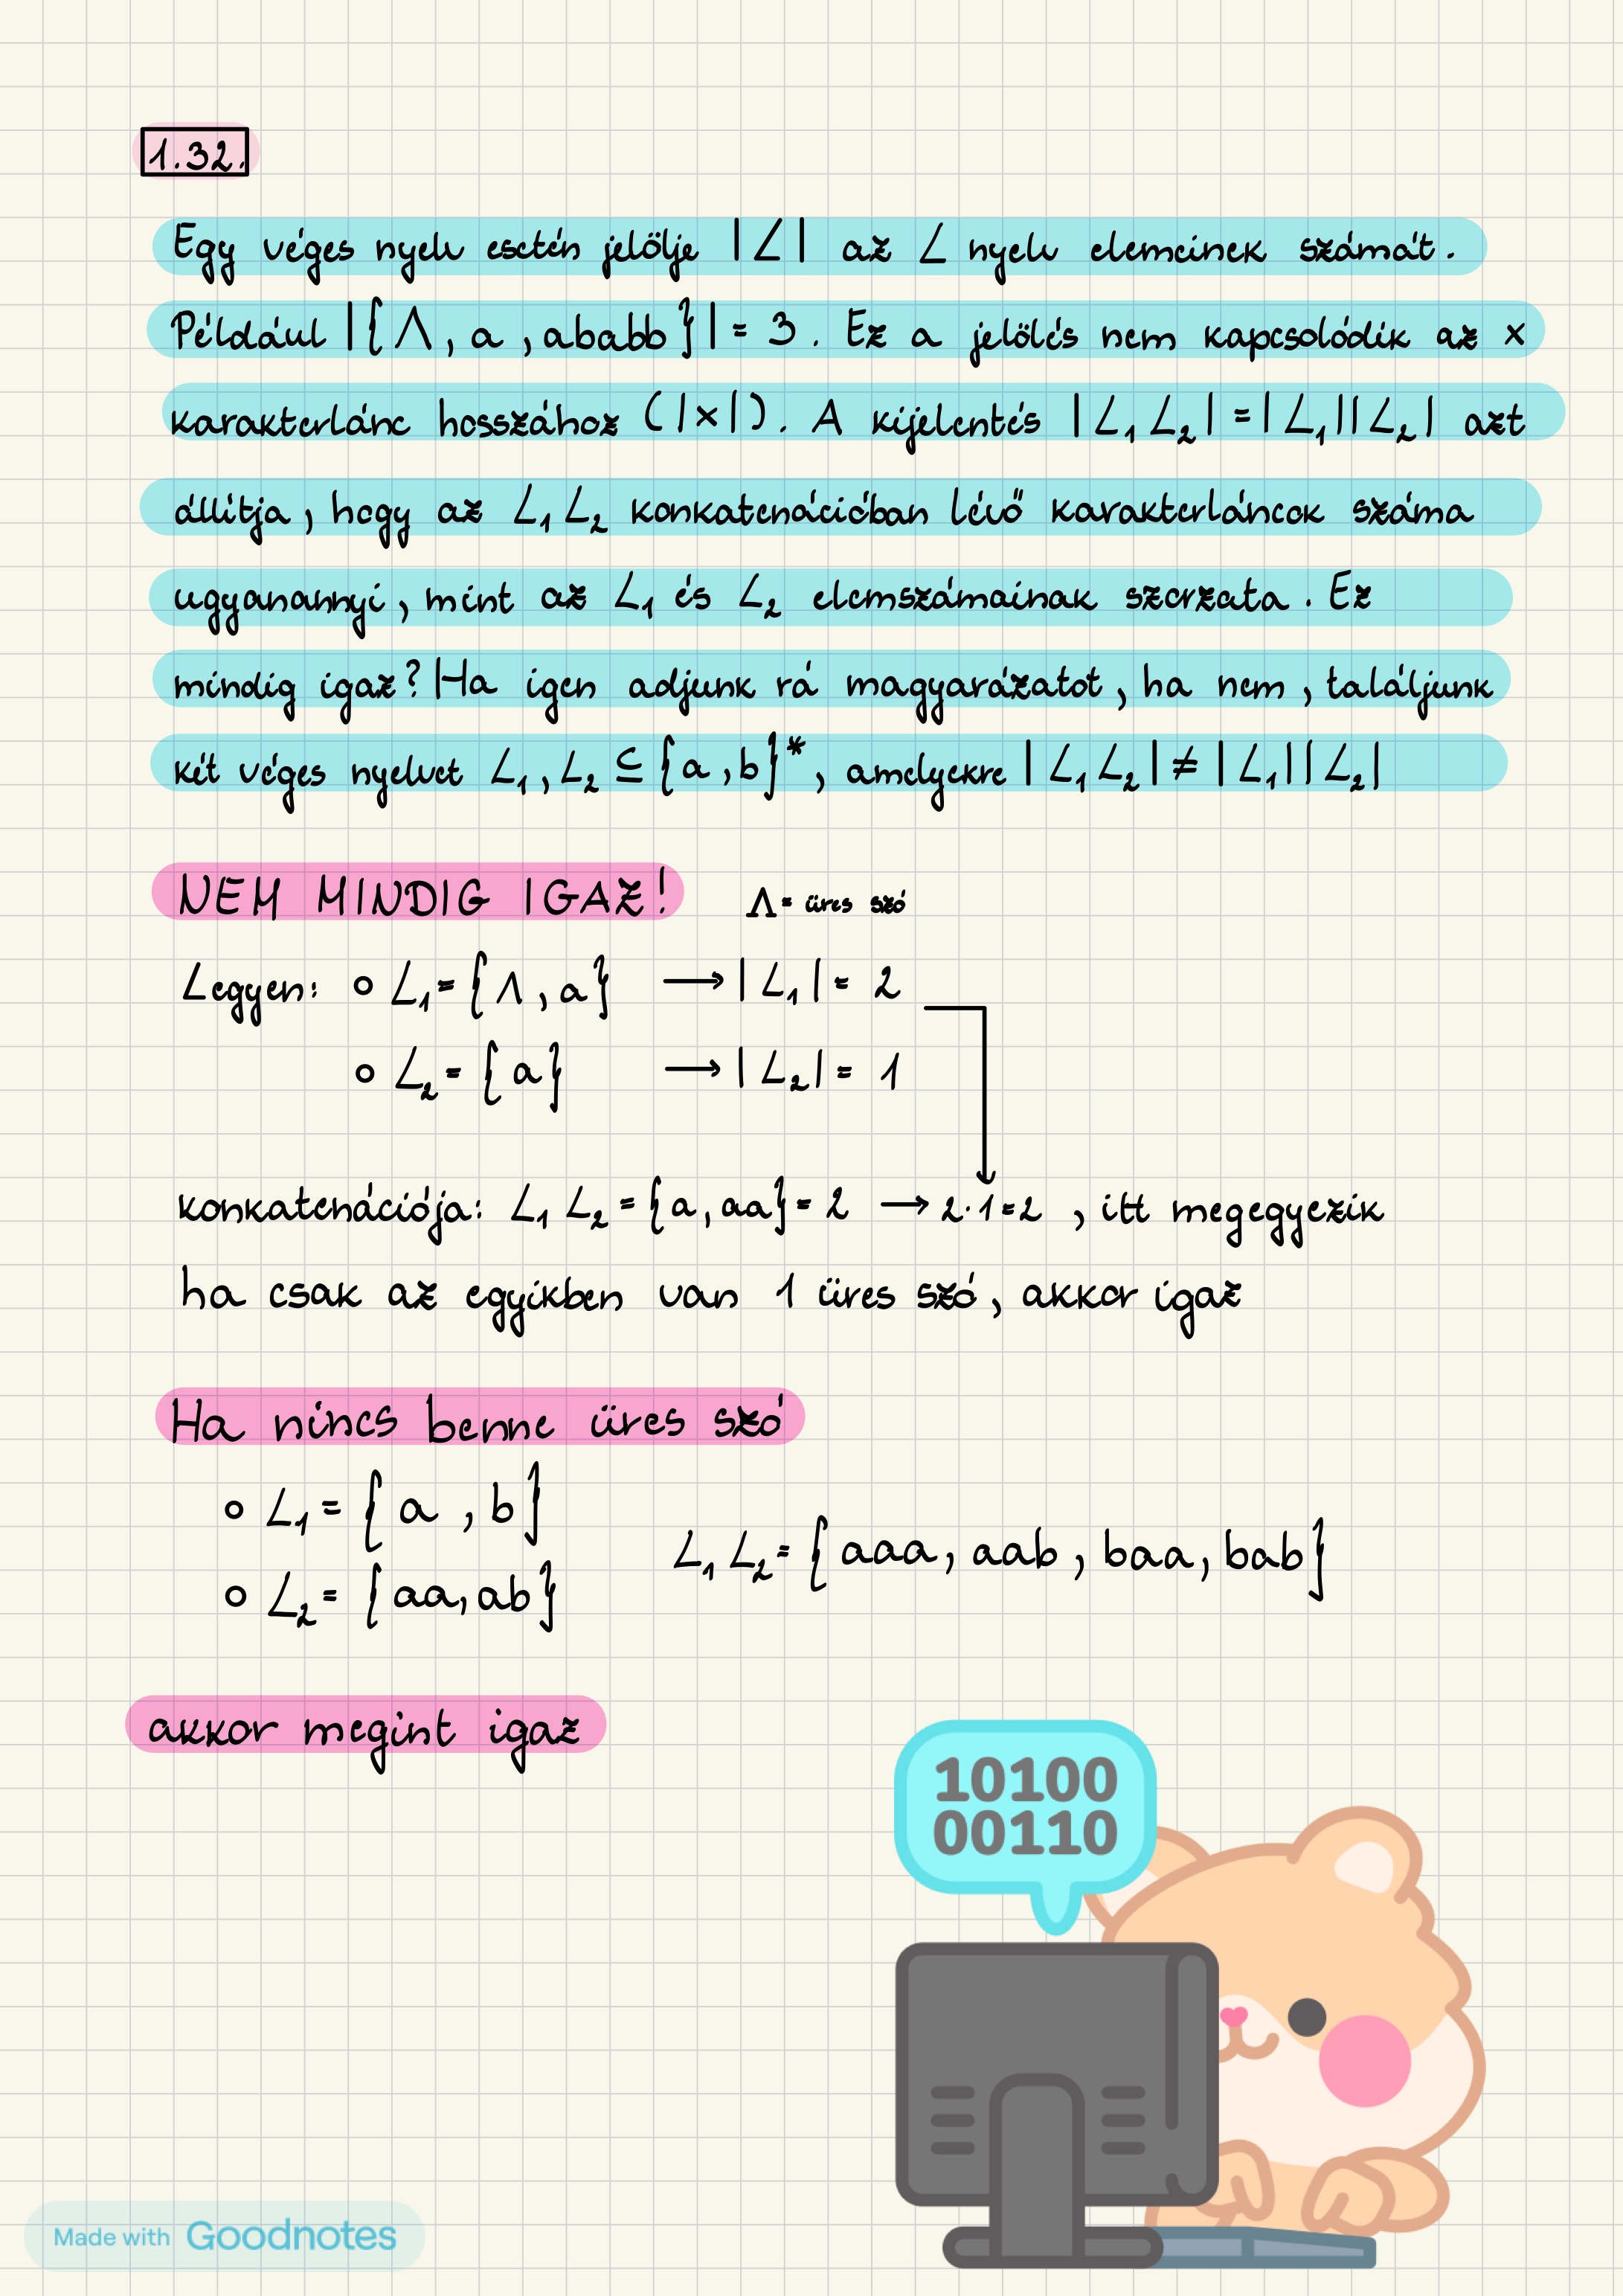 1.32.
Egy véges nyelv esetén jelölje |L| az L nyelv elemeinek számát.
Például |{Λ, a, ababb}| = 3. Ez a jelölés nem kapcsolódik az x
karakterlánc hosszához (|x|). A kijelentés |L₁L₂| = |L₁||L₂| azt
állítja, hogy az L₁L₂ konkatenációban lévő karakterláncok száma
ugyanannyi, mint az L₁ és L₂ elemszámainak szorzata. Ez
mindig igaz? Ha igen adjunk rá magyarázatot, ha nem, találjunk
két véges nyelvet L₁, L₂ ⊆ {a, b}*, amelyekre |L₁L₂| ≠ |L₁||L₂|
NEM MINDIG IGAZ! Λ = üres szó
Legyen: ○ L₁ = {Λ, a} → |L₁| = 2
○ L₂ = {a} → |L₂| = 1
konkatenációja: L₁L₂ = {a, aa} = 2 → 2·1=2, itt megegyezik
ha csak az egyikben van 1 üres szó, akkor igaz
Ha nincs benne üres szó
○ L₁ = {a, b}
L₁L₂ = {aaa, aab, baa, bab}
○ L₂ = {aa, ab}
akkor megint igaz
10100
00110
Made with Goodnotes